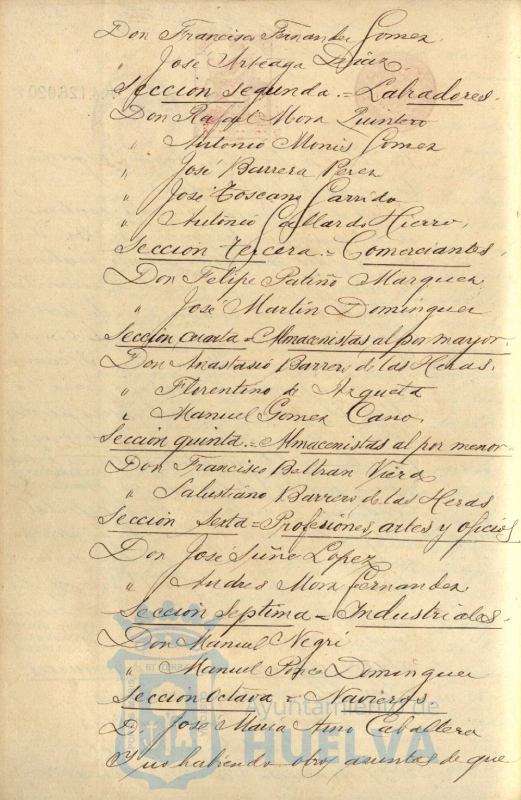 Don Francisco Fernandez Gomez.
" José Arteaga Diaz
Seccion segunda. = Labradores.
Don Rafael Mora Quintero
" Antonio Monis Gomez
" José Barrera Perez
" José Toscano Garrido
" Antonio Gallardo Hierro.
Seccion tercera. = Comerciantes.
Don Felipe Patiño Marquez
" José Martin Dominguez
Seccion cuarta = Almacenistas al por mayor.
Don Anastasio Barrero de las Heras.
" Florentino de Azqueta
" Manuel Gomez Cano.
Seccion quinta. = Almacenistas al por menor =
Don Francisco Beltran Viera
" Salustiano Barrero de las Heras
Seccion Sesta = Profesiones, artes y oficios
Don José Suñe Lopez
" Andres Mora Fernandez
Seccion Septima = Industriales.
Don Manuel Negri
" Manuel Ponce Dominguez
Seccion Octava = Navieros
D. José Maria Amo Caballero
Y no habiendo otros asuntos de que
Ayuntamiento de
HUELVA